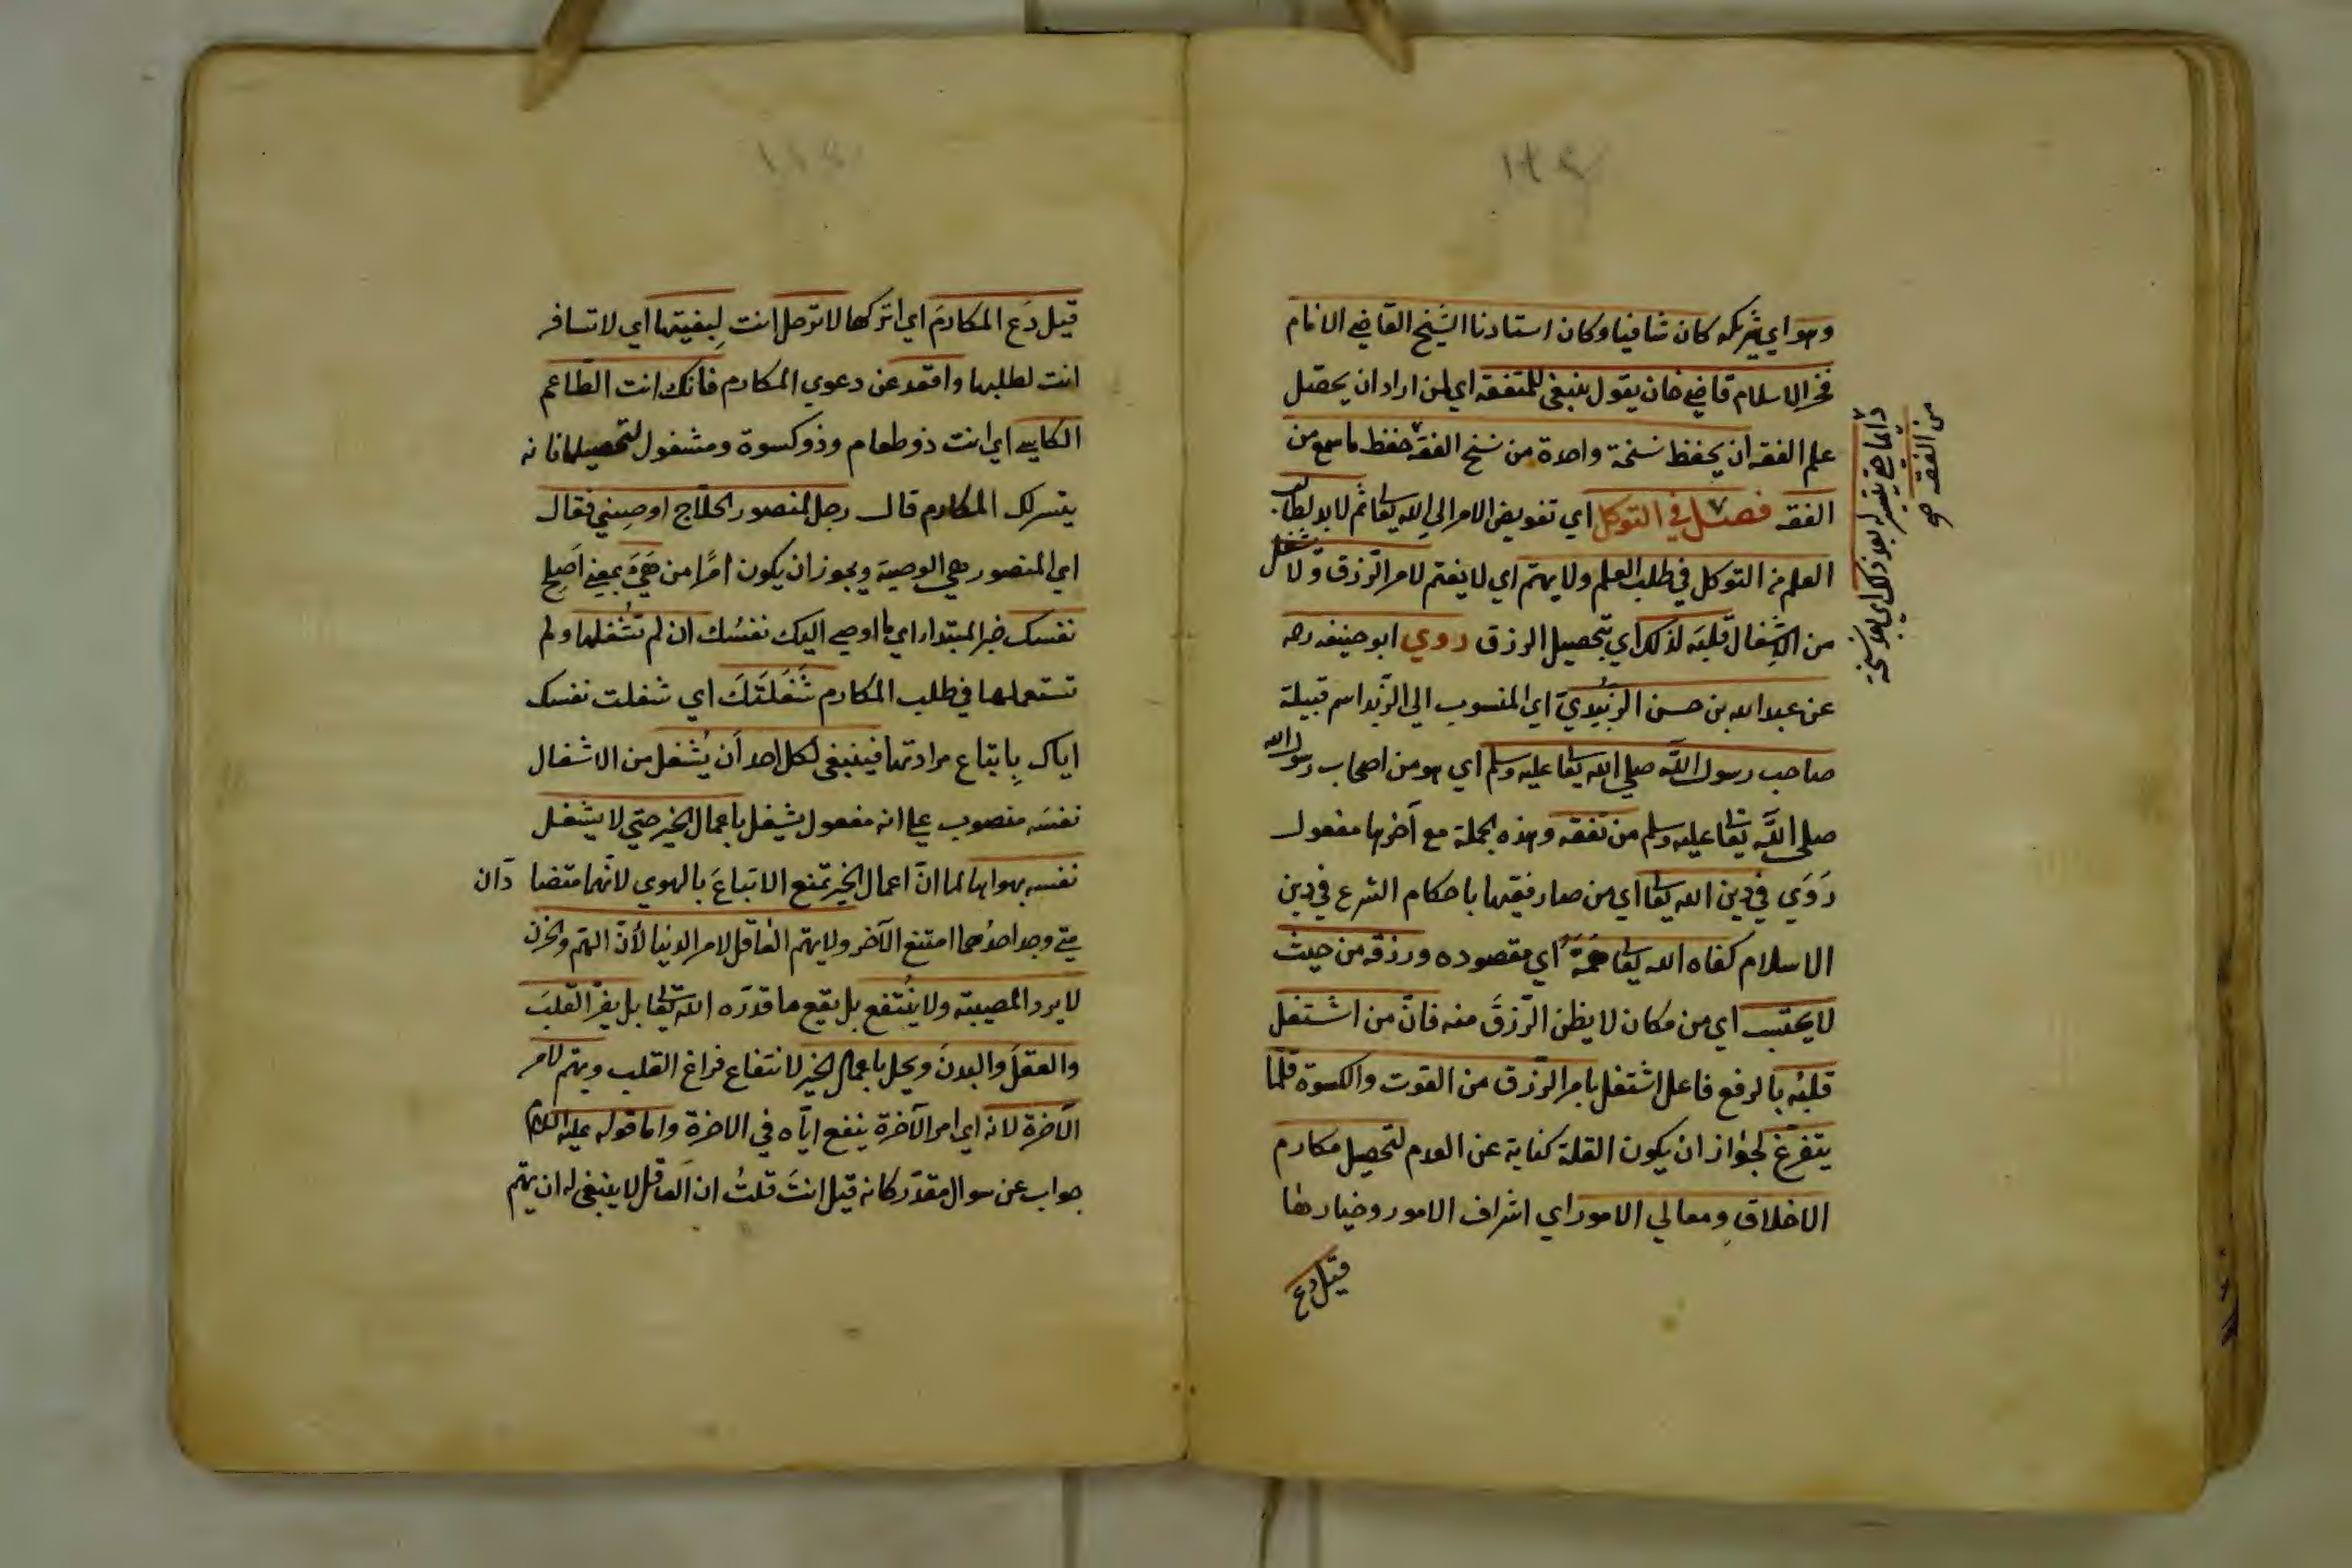 وهو اي شريكه كان شافيا وكان استادنا الشيخ القاضي الامام
فخر الاسلام قاضي خان يقول ينبغي للمتفقه اي لمن اراد ان يحصل
علم الفقه ان يحفظ نسخة واحدة من نسخ الفقه حفظ ما سمع من
الفقه فصل في التوكل اي تفويض الامر الي الله تعا ثم لا بد لطالب
العلم من التوكل في طلب العلم ولا يهتم اي لا يغتم لامر الرزق ولا يشغل
من الاشغال قلبه لذلك اي بتحصيل الرزق روي ابو حنيفه رحه
عن عبد الله بن حسن الزبيدي اي المنسوب الي الزبيد اسم قبيلة
صاحب رسول الله صلي الله تعا عليه وسلم اي هو من اصحاب رسول الله
صلي الله تعا عليه وسلم من تفقه وهذه الجملة مع آخرها مفعول
رَوَي في دين الله تعا اي من صار فقيها باحكام الشرع في دين
الاسلام كفاه الله تعا همه اي مقصوده ورزقه من حيث
لا يحتسب اي من مكان لا يظن الرزقَ منه فانّ من اشتغل
قلبُه بالرفع فاعل اشتغل بامر الرزق من القوت والكسوة قلّما
يتفرغ لجواز ان يكون القلة كناية عن العدم لتحصيل مكارم
الاخلاق ومعالي الامور اي اشراف الامور وخيارها
قيل دع
دائما حتي يتيسر له بعد ذلك اي بعد نسخة
من الفقه صح
قيل دَع المكارمَ اي اتركها لا ترحل انت لِبغيتها اي لا تسافر
انت لطلبها واقعد عن دعوي المكارم فانك انت الطاعم
الكاسي اي انت ذو طعام وذو كسوة ومشغول لتحصيلها فانه
يتسر لك المكارم قال رجل لمنصور الحلّاج اوصِيني فقال
اي المنصور هي الوصية ويجوز ان يكون امرًا من هَيَّءَ بمعني اَصلِح
نفسك خبر المبتداء اي ما اوصي اليك نفسُك ان لم تُشغلها ولم
تستعملها في طلب المكارم شَغَلَتكَ اي شغلت نفسك
اياك بِاتباع مراداتها فينبغي لكل احد أن يُشغل من الاشغال
نفسَه منصوب علي انه مفعول يشغل باعمال الخير حتي لا يشغل
نفسه بهواها لما انّ اعمال الخير تمنع الاتباعَ بالهوي لانّهما متضادّان
متي وجد احدُهما امتنع الآخر ولا يهتم العاقل لامر الدنيا لأنّ الهم والحزن
لا يرد المصيبة ولا ينتفع بل يقع ما قدّره الله تعا بل يضرّ القلبَ
والعقلَ والبدنَ ويخل باعمال الخير لانتفاع فراغ القلب ويهتم لامر
الآخرة لانه اي امر الآخرة ينفع ايّاه في الاخرة واما قوله عليه السلام
جواب عن سوال مقدّر كانه قيل انتَ قلتُ ان العاقل لا ينبغي له ان يهتم